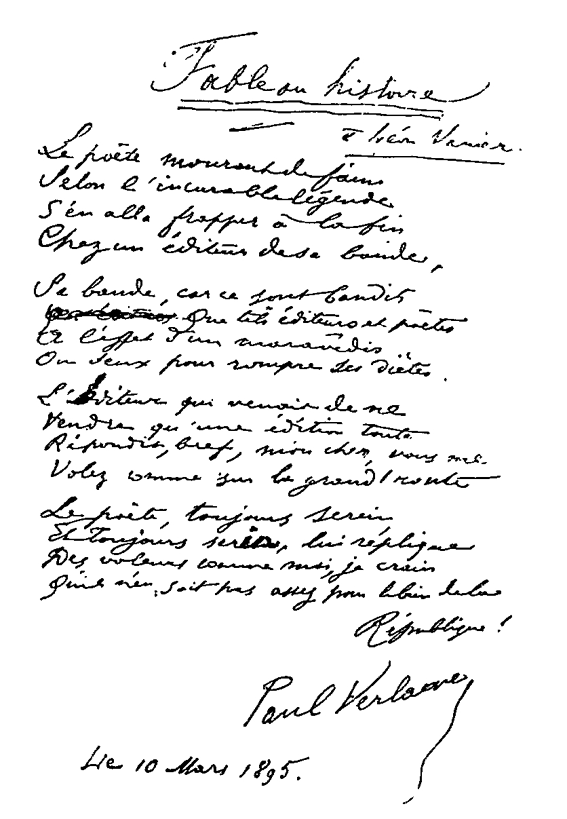 Fable ou histoire
à Léon Vanier.
Le poète mourant de faim
Selon l'incurable légende
S'en alla frapper à la fin
Chez un éditeur de sa bande,
Sa bande, car ce sont bandits
Que tels éditeurs et poètes
A l'effet d'un maravédis
Ou deux pour rompre ses diètes.
L'Éditeur qui venoit de ne
Vendre qu'une édition toute
Répondit, bref, mon cher, vous me
Volez comme sur la grand'route
Le poète, toujours serein
Et toujours serin, lui réplique
Des voleurs comme moi, je crains
Qu'il n'en soit pas assez pour le bien de la
République !
Paul Verlaine
Le 10 Mars 1895.